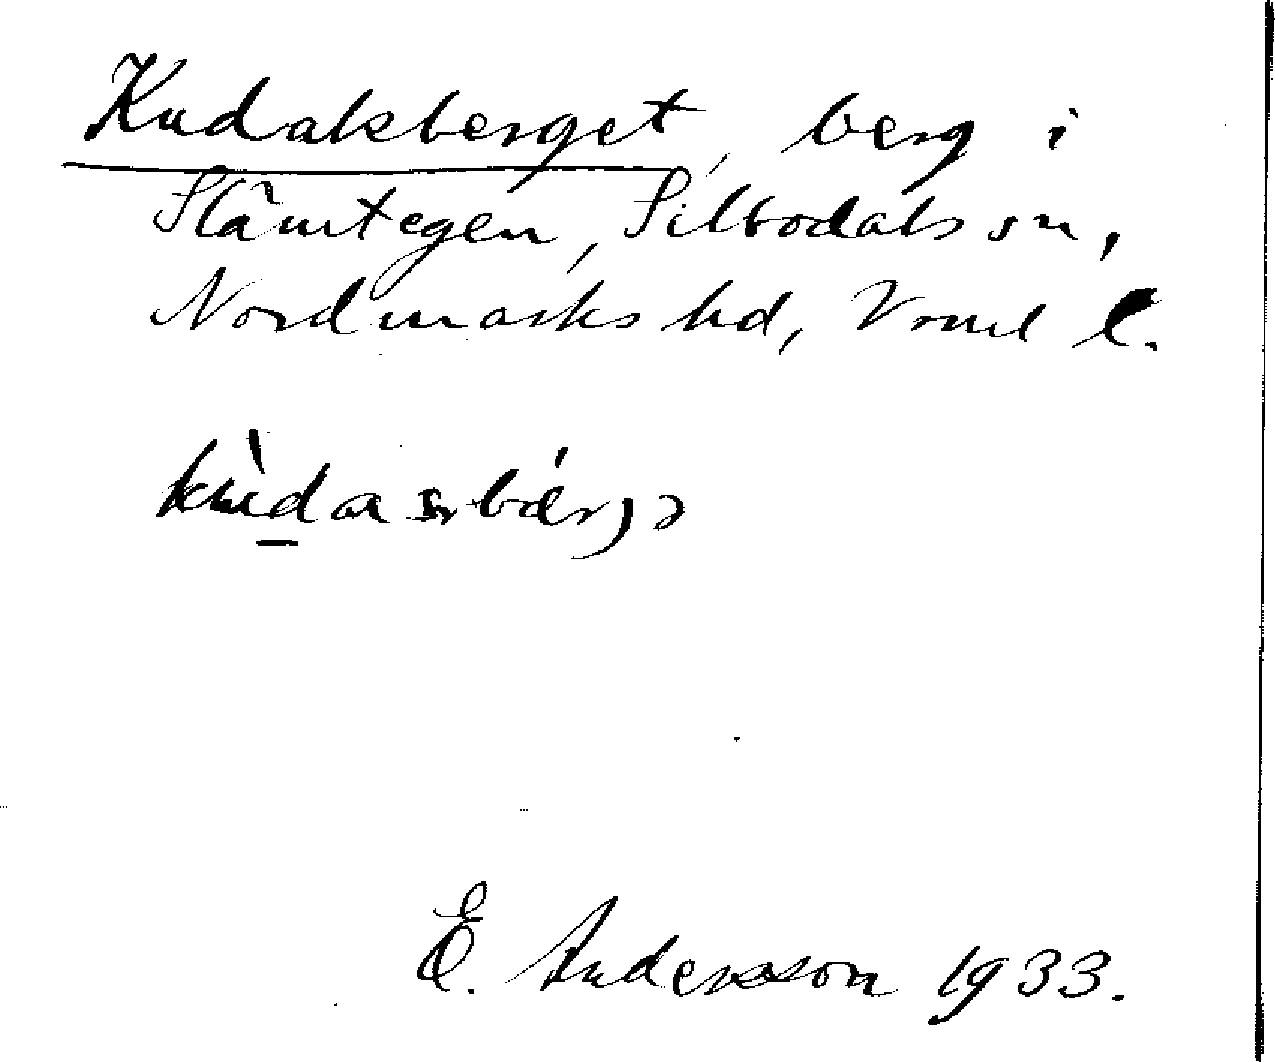 Kudalsberget, berg i
Slämtegen, Silbodals sn,
Nordmarks hd, Vrml l.
E. Andersson 1933.